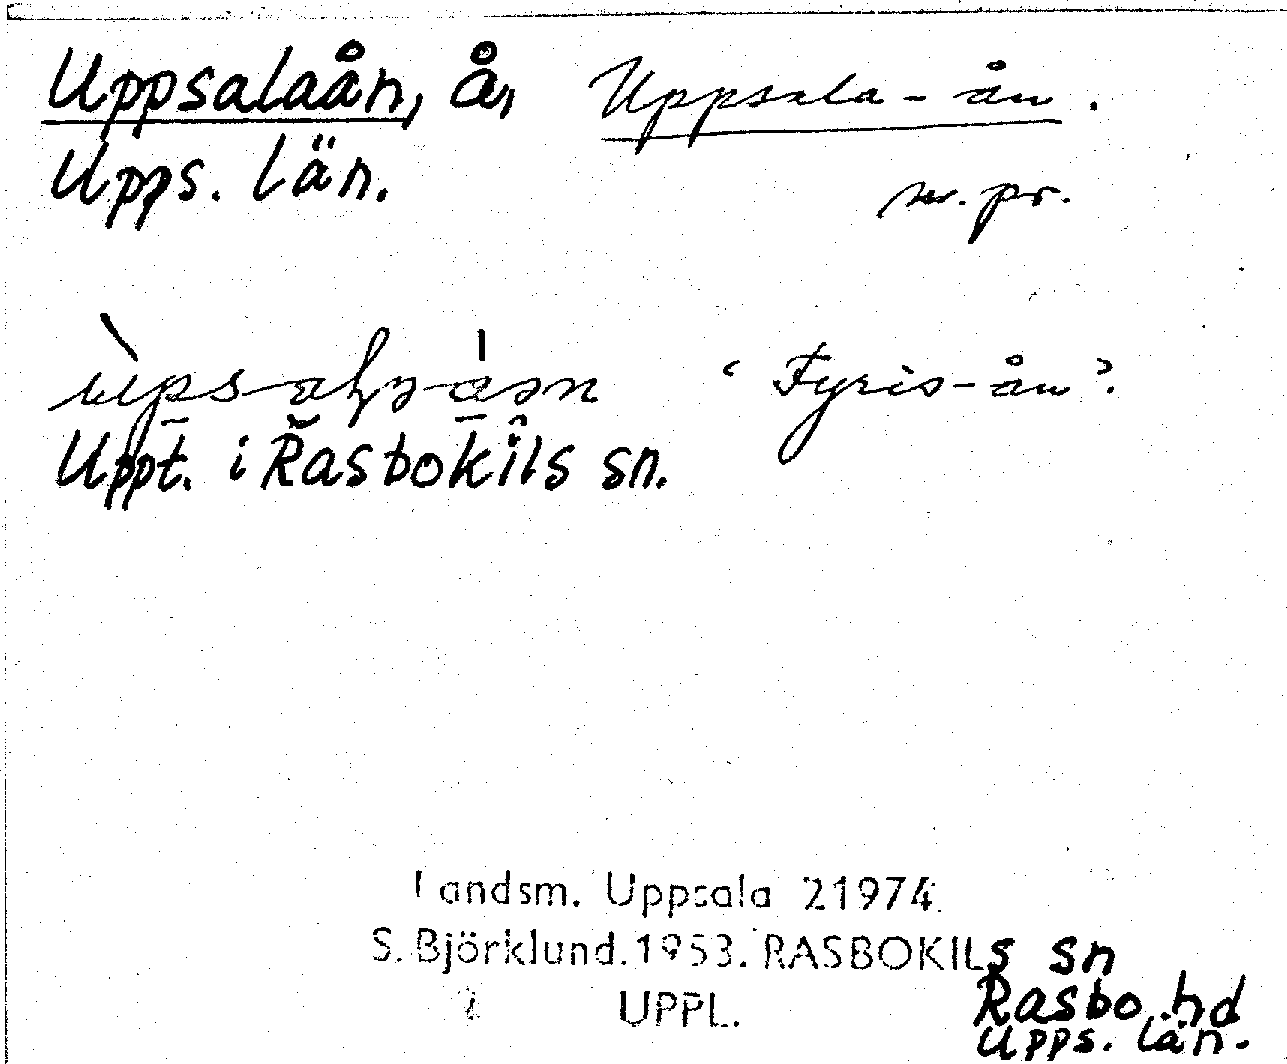 Uppsalaån, å, Uppsala-ån.
Upps. län. pr.
‘Fyris-ån’.
Uppt. i Rasbokils sn.
Landsm. Uppsala 21974.
S. Björklund. 1953. RASBOKILS sn
UPPL. Rasbo hd
Upps. län.